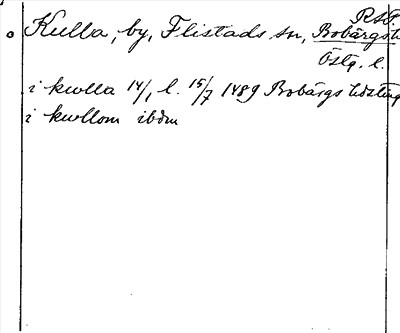 RSD.
Kulla, by, Flistads sn, Bobärgs h.
Östg. l.
i kwlla 14/1 l. 15/7 1489 Bobärgs hdsting
i kwllom ibdm